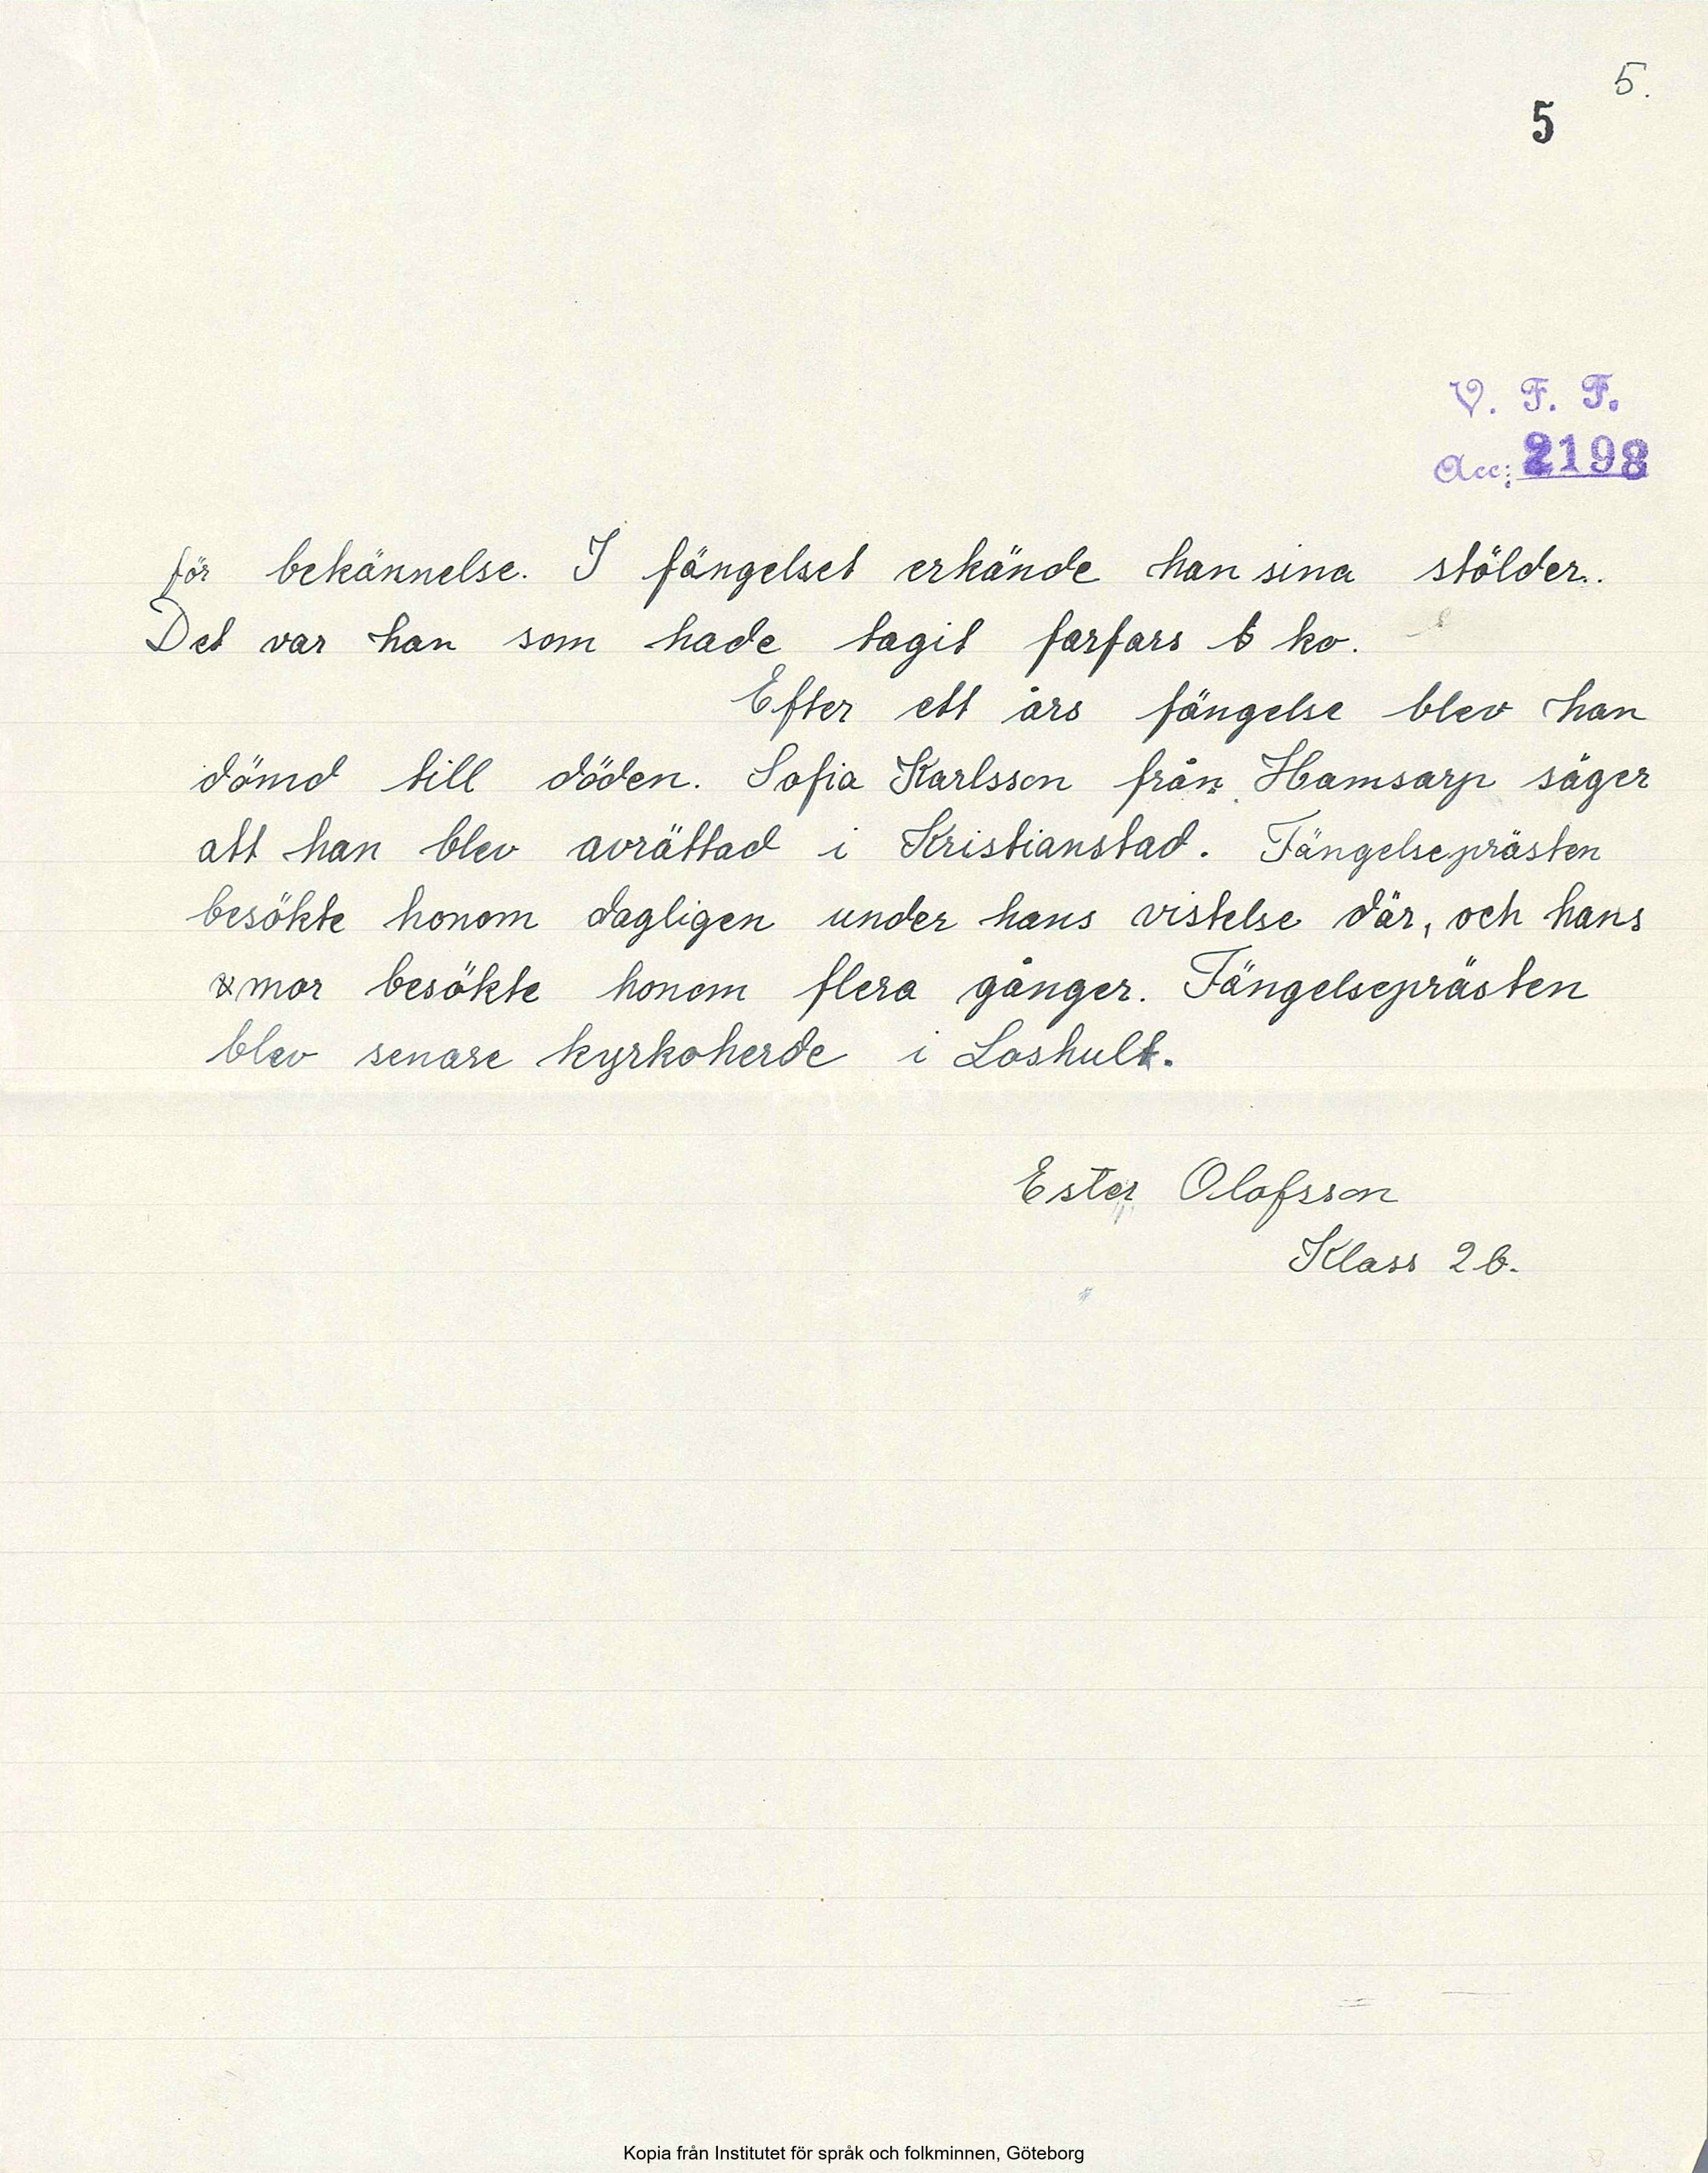 5.
5
V. F. F.
Acc: 2198
för bekännelse. I fängelset erkände han sina stölder.
Det var han som hade tagit farfars ko.
Efter ett års fängelse blev han
dömd till döden. Sofia Karlsson från Hamsarp säger
att han blev avrättad i Kristianstad. Fängelseprästen
besökte honom dagligen under hans vistelse där, och hans
mor besökte honom flera gånger. Fängelseprästen
blev senare kyrkoherde i Loshult.
Ester Olofsson
Klass 2 b.
Kopia från Institutet för språk och folkminnen, Göteborg